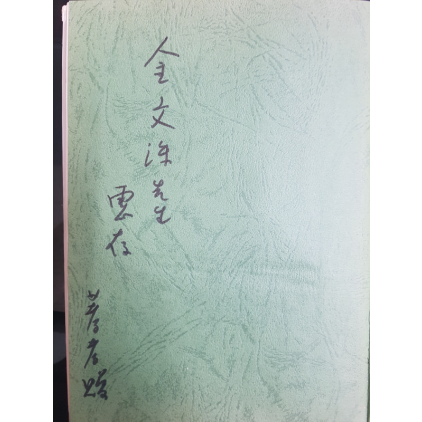 金文洙先生
惠存
著者 贈